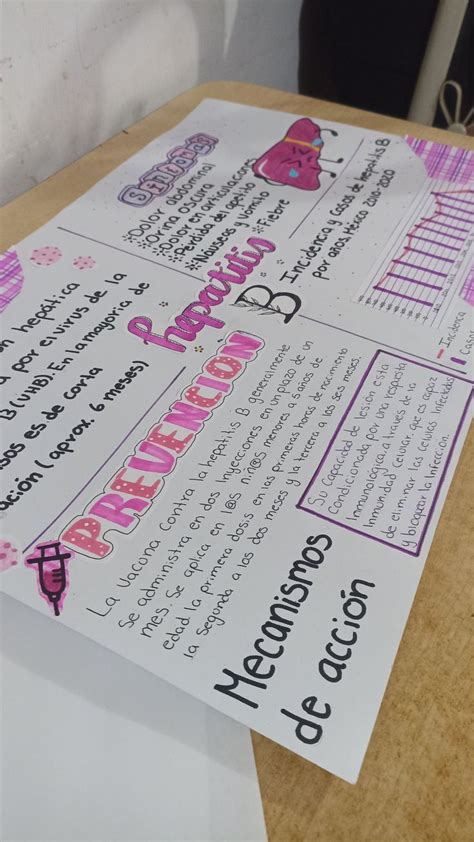 Síntomas
Dolor abdominal
Orina oscura
Dolor en articulaciones
Perdida del apetito
Nauseas y vomito
Fiebre
hepatitis
B
hepática
por el virus de la
B (VHB). En la mayoria de
sos es de corta
ación (aprox. 6 meses)
Incidencia y Casos de hepatitis B
por años. México 2000-2020
Incidencia
PREVENCIÓN
La Vacuna Contra la hepatitis B generalmente
Se administra en dos inyecciones en un plazo de un
mes. Se aplica en l@s niñ@s menores a 5 años de
edad la primera dosis en las primeras horas de nacimiento
la segunda a las dos meses y la tercera a los seis meses.
Mecanismos
de acción
Su capacidad de lesión esta
Condicionada por una respuesta
Inmunológica a través de la
Inmunidad Celular que es capaz
de eliminar las celulas Infectadas
y bloquear la infección.